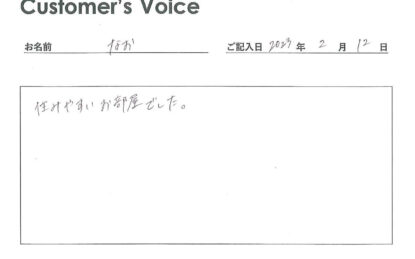 Customer's Voice
お名前 なお ご記入日 2023 年 2 月 12 日
住みやすいお部屋でした。